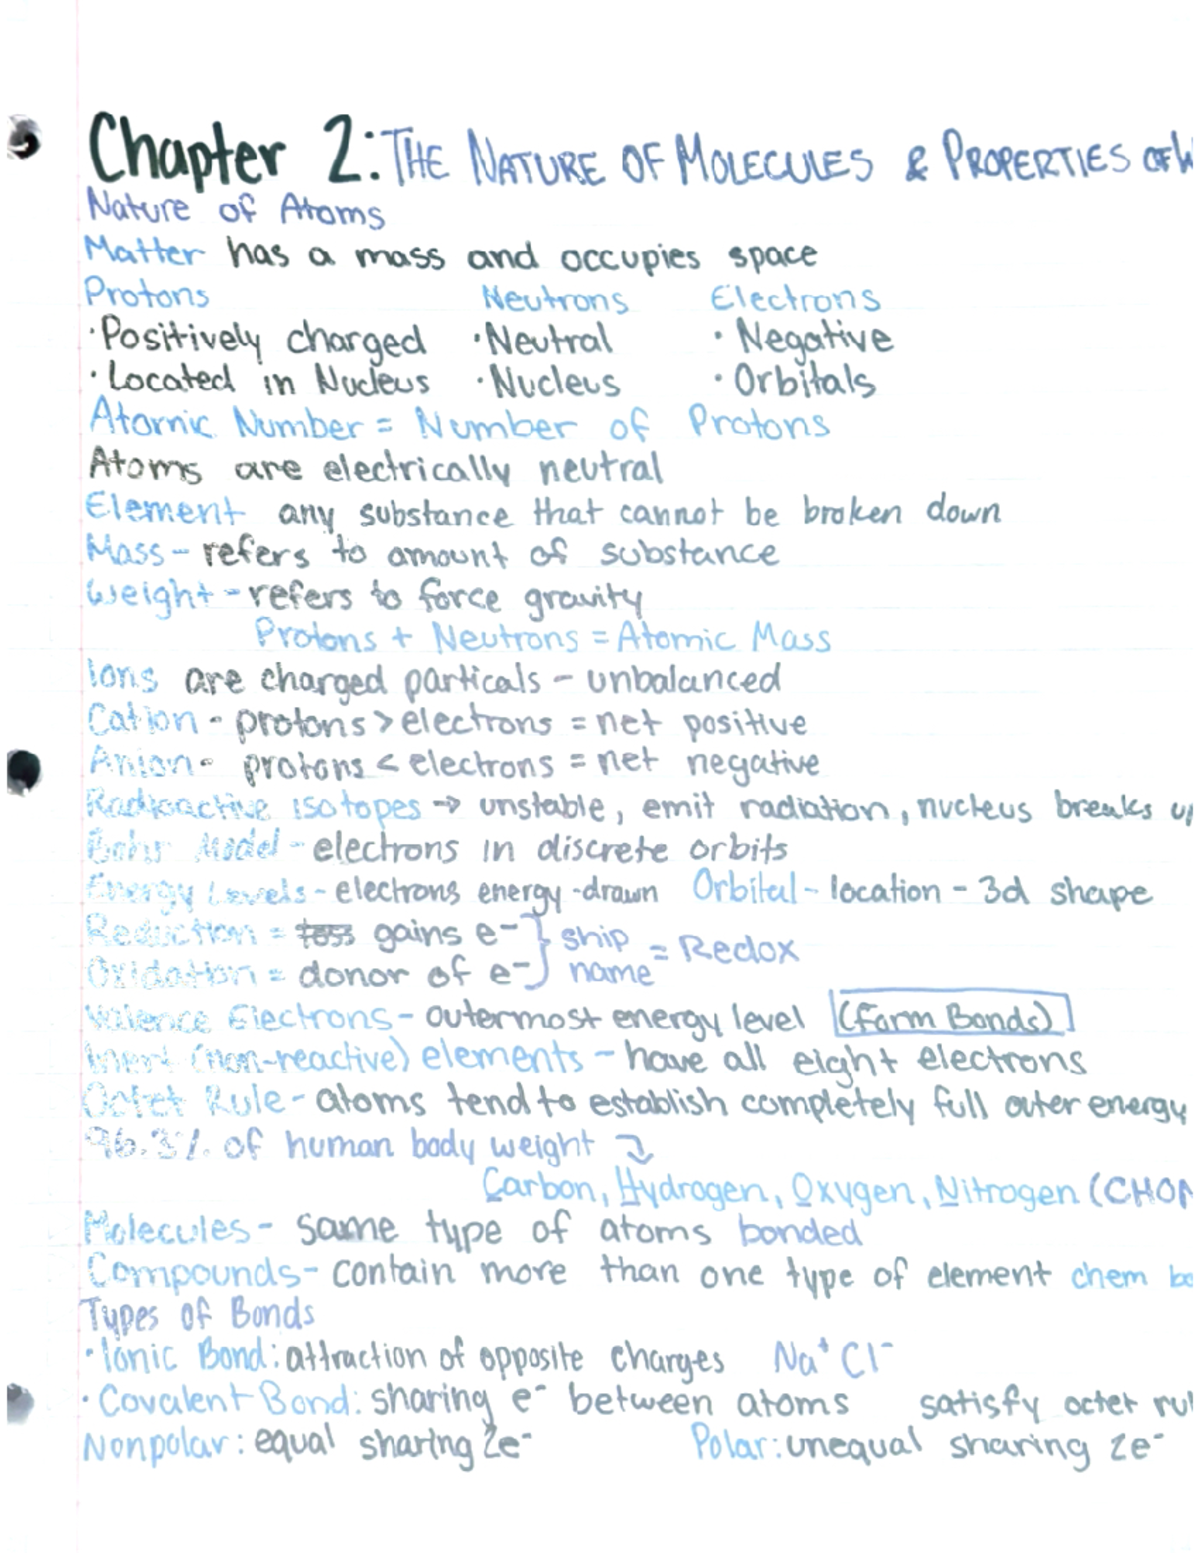 Chapter 2: THE NATURE OF MOLECULES & PROPERTIES OF W
Nature of Atoms
Matter has a mass and occupies space
Protons Neutrons Electrons
·Positively charged ·Neutral ·Negative
·Located in Nucleus ·Nucleus ·Orbitals
Atomic Number = Number of Protons
Atoms are electrically neutral
Element any substance that cannot be broken down
Mass - refers to amount of substance
Weight - refers to force gravity
Protons + Neutrons = Atomic Mass
Ions are charged particals - unbalanced
Cation - protons > electrons = net positive
Anion - protons < electrons = net negative
Radioactive isotopes → unstable, emit radiation, nucleus breaks up
Bohr Model - electrons in discrete orbits
Energy Levels - electrons energy -drawn Orbital - location - 3d shape
Reduction = loss gains e⁻ } ship = Redox
Oxidation = donor of e⁻ } name
Valence Electrons - outermost energy level (Form Bonds)
Inert (non-reactive) elements - have all eight electrons
Octet Rule - atoms tend to establish completely full outer energy
96.3% of human body weight ↴
Carbon, Hydrogen, Oxygen, Nitrogen (CHON
Molecules - same type of atoms bonded
Compounds - contain more than one type of element chem bo
Types of Bonds
·Ionic Bond: attraction of opposite charges Na⁺ Cl⁻
·Covalent Bond: sharing e⁻ between atoms satisfy octet rul
Nonpolar: equal sharing 2e⁻ Polar: unequal sharing 2e⁻